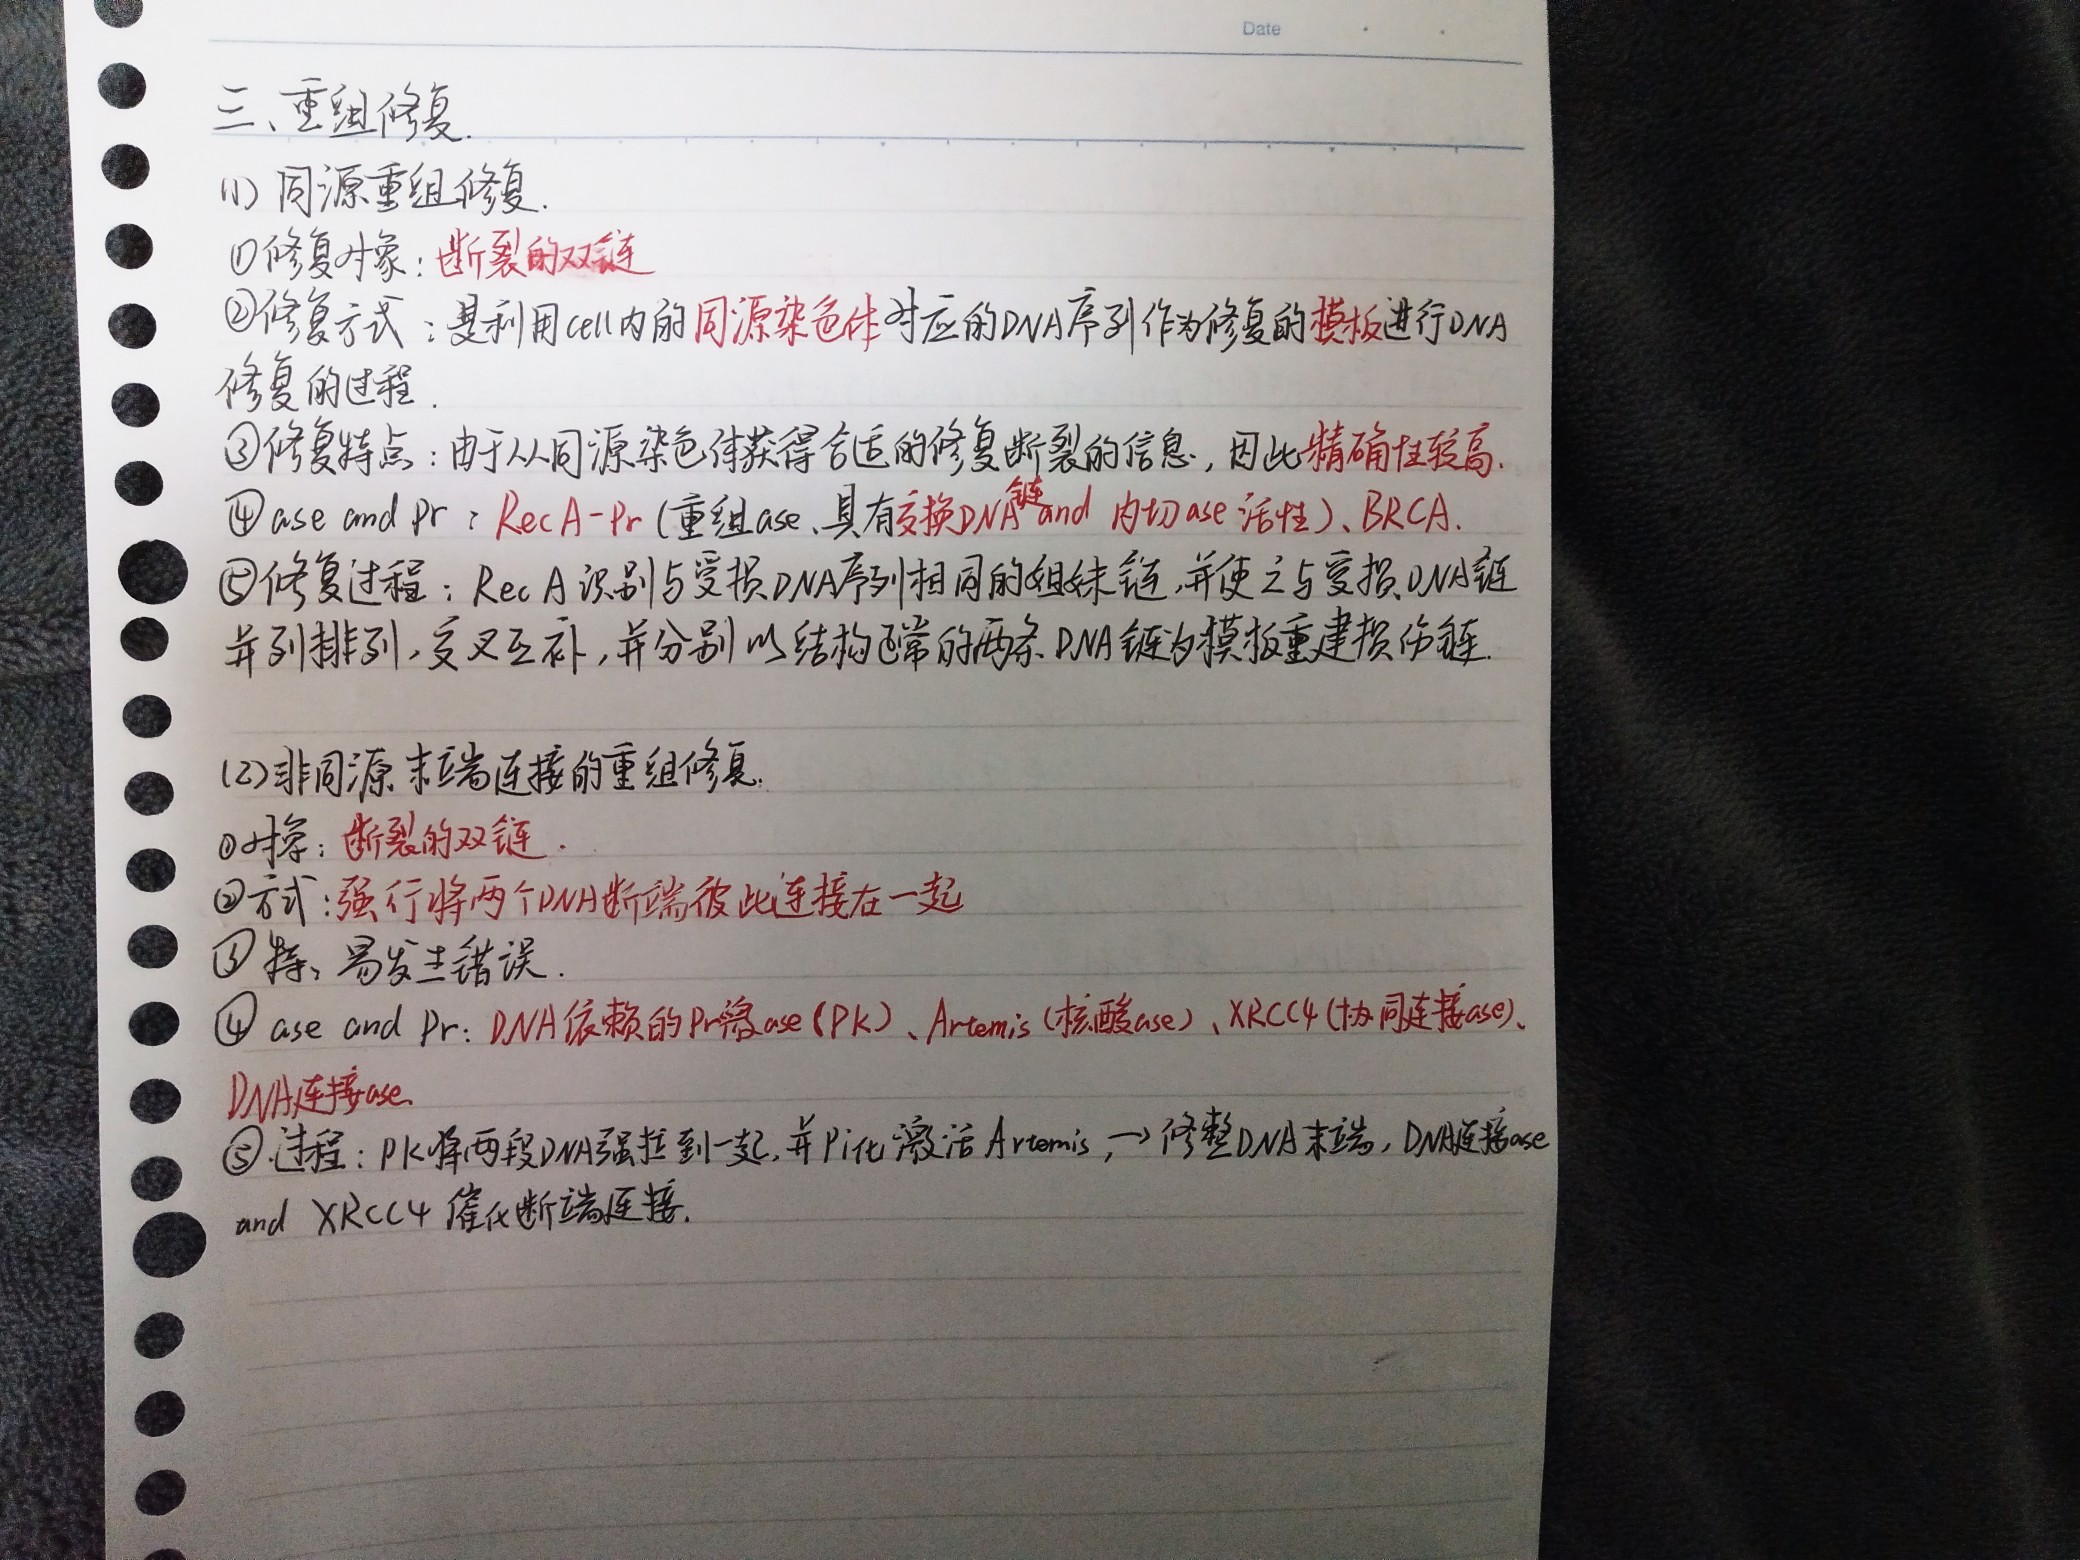 Date
三、重组修复.
(1) 同源重组修复.
①修复对象：断裂的双链
②修复方式：是利用cell内的同源染色体对应的DNA序列作为修复的模板进行DNA
修复的过程.
③修复特点：由于从同源染色体获得合适的修复断裂的信息，因此精确性较高.
④ase and Pr：RecA-Pr（重组ase、具有交换DNA链and 内切ase活性）、BRCA.
⑤修复过程：RecA识别与受损DNA序列相同的姐妹链，并使之与受损DNA链
并列排列，交叉互补，并分别以结构正常的两条DNA链为模板重建损伤链.
(2)非同源末端连接的重组修复.
①对象：断裂的双链.
②方式：强行将两个DNA断端彼此连接在一起
③特：易发生错误.
④ ase and Pr：DNA依赖的Pr激ase（PK）、Artemis（核酸ase）、XRCC4（协同连接ase）、
DNA连接ase.
⑤.过程：PK将两段DNA强拉到一起，并Pi化激活Artemis，→修整DNA末端，DNA连接ase
and XRCC4 催化断端连接.